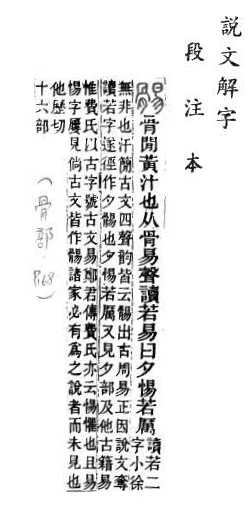 說文解字
段注本
䯜骨閒黃汁也从骨易聲讀若易曰夕惕若厲讀若二
字小徐
無非也汗簡古文四聲韵皆云䯜出古周易正因說文奪
讀若字遂徑作夕䯜也夕惕若厲又見夕部及他古籍易
惟費氏以古字號古文易鄭君傳費氏亦云惕懼也且易
惕字屢見倘古文皆作䯜諸家必有爲之說者而未見也
他歷切
十六部
(骨部. P.168)